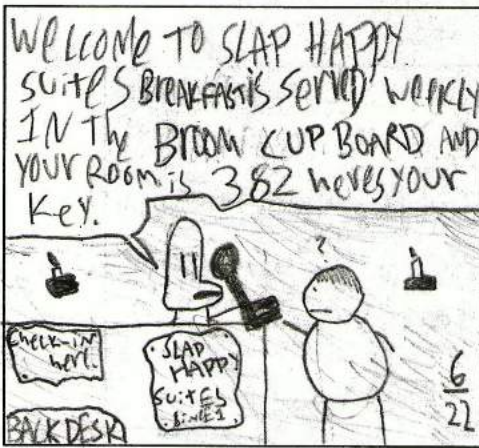 WELCOME TO SLAP HAPPY
SUITES BREAKFAST IS SERVED WEEKLY
IN THE BROOM CUP BOARD AND
YOUR ROOM is 382 heres YOUR
Key.
?
Check-in
here.
SLAP
HAPPY
SUITES
BACK DESK
6
22